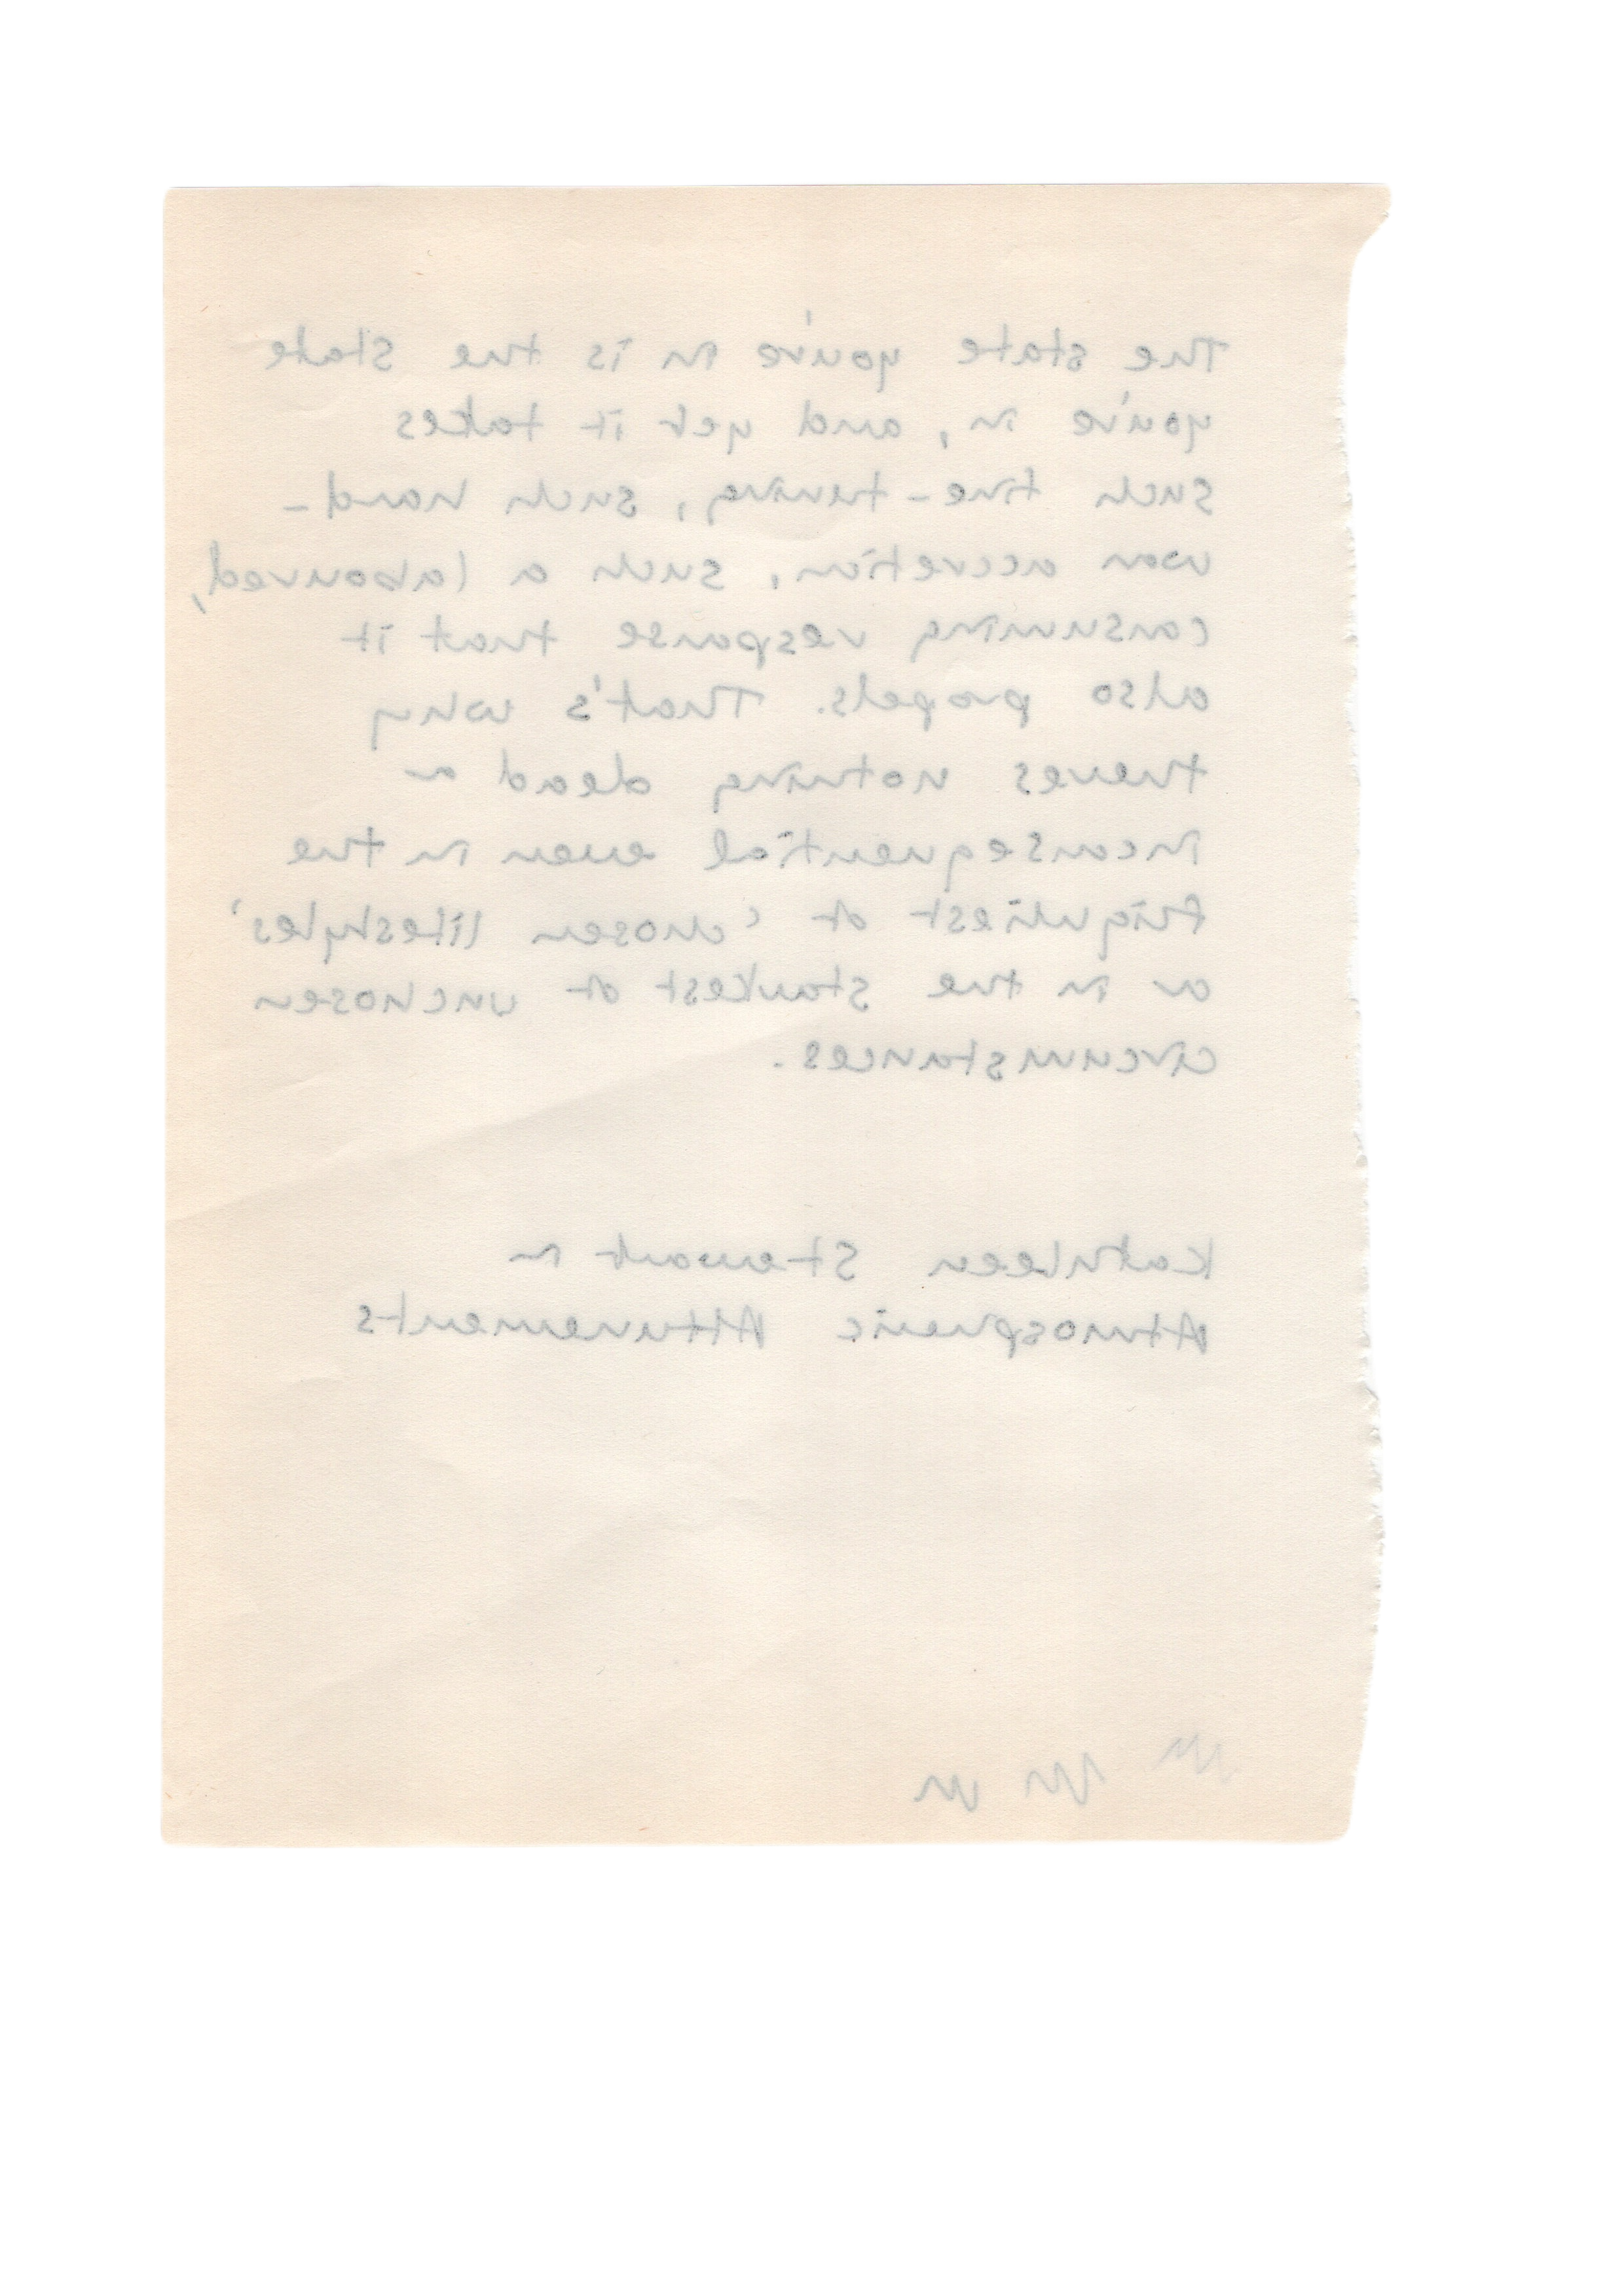 The state you're in is the state
you're in, and yet it takes
such fine-tuning, such hard-
won accretion, such a laboured,
consuming response that it
also propels. That's why
there's nothing dead or
inconsequential even in the
flightiest of 'chosen lifestyles'
or in the starkest of unchosen
circumstances.
Kathleen Stewart in
Atmospheric Attunements